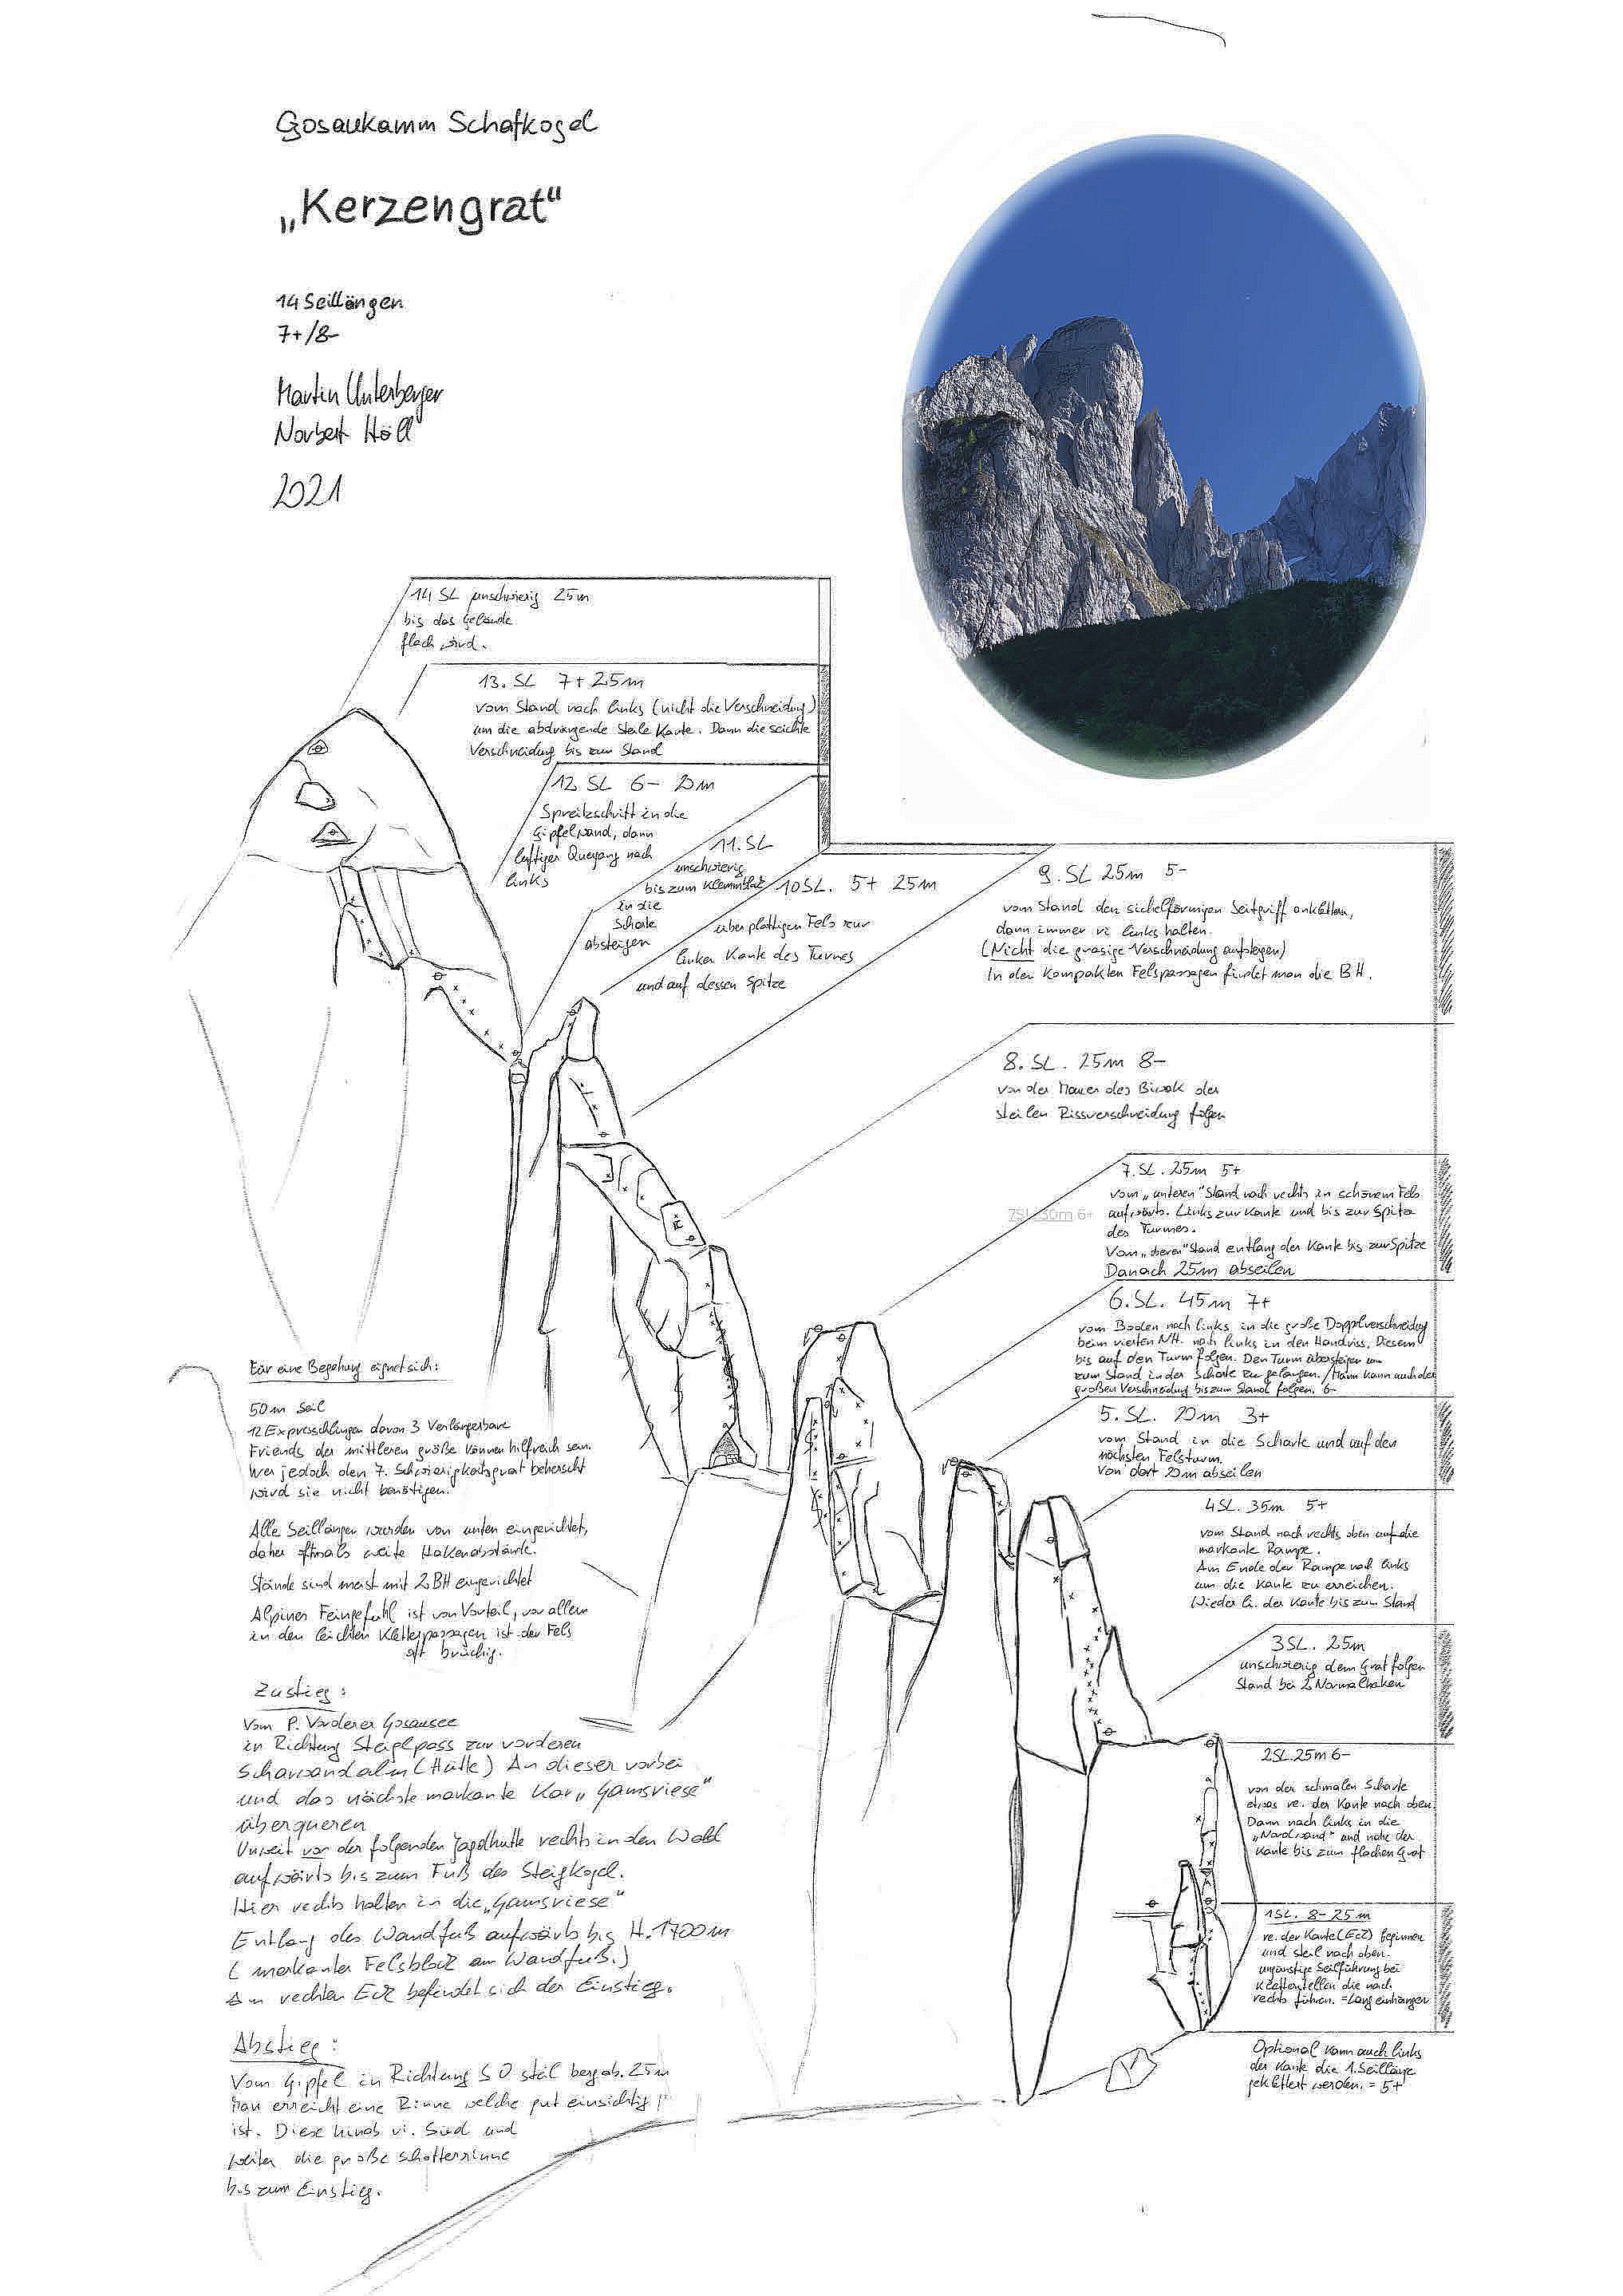 Gosaukamm Schafkogel
„Kerzengrat“
14 Seillängen
7+/8-
Martin Unterberger
Norbert Höll
2021
14 SL unschwierig 25m
bis das Gelände
flach wird.
13. SL 7+ 25m
vom Stand nach links (nicht die Verschneidung)
um die abdrängende steile Kante. Dann die seichte
Verschneidung bis zum Stand
12. SL 6- 20m
Spreizschritt in die
Gipfelwand, dann
luftiger Quergang nach
links
11. SL
unschwierig
bis zum Klemmblock
in die
Scharte
absteigen
10SL. 5+ 25m
über plattigen Fels zur
linken Kante des Turmes
und auf dessen Spitze
9. SL 25m 5-
vom Stand den sichelförmigen Seitgriff anklettern,
dann immer li links halten.
(Nicht die grasige Verschneidung aufsteigen)
In den kompakten Felspassagen findet man die BH.
8. SL. 25m 8-
von der Mauer des Biwak der
steilen Rissverschneidung folgen
7. SL. 25m 5+
vom „unteren“ Stand nach rechts in schönem Fels
7SL. 30m 6+ aufwärts. Links zur Kante und bis zur Spitze
des Turmes.
Vom „oberen“ Stand entlang der Kante bis zur Spitze
Danach 25m abseilen
6. SL. 45m 7+
vom Boden nach links in die große Doppelverschneidung
beim vierten NH. nach links in den Handriss. Diesem
bis auf den Turm folgen. Den Turm übersteigen um
zum Stand in der Scharte zu gelangen. /Mann kann auch der
großen Verschneidung bis zum Stand folgen. 6-
5. SL. 20m 3+
vom Stand in die Scharte und auf den
nächsten Felsturm.
Von dort 20m abseilen
4SL. 35m 5+
vom Stand nach rechts oben auf die
markante Rampe.
Am Ende der Rampe nach links
um die Kante zu erreichen.
Wieder li. der Kante bis zum Stand
3SL. 25m
unschwierig dem Grat folgen
Stand bei 2 Normalhaken
2SL. 25m 6-
von der schmalen Scharte
etwas re. der Kante nach oben.
Dann nach links in die
„Nordwand“ und nahe der
Kante bis zum flachen Grat
1SL. 8- 25m
re. der Kante (Eck) beginnen
und steil nach oben.
ungünstige Seilführung bei
Kletterstellen die nach
rechts führen. = Lang einhängen
Optional kann auch links
der Kante die 1. Seillänge
geklettert werden. = 5+
Für eine Begehung eignet sich:
50m Seil
12 Expressschlingen davon 3 Verlängerbare
Friends der mittleren größe können hilfreich sein.
Wer jedoch den 7. Schwierigkeitsgrat beherscht
wird sie nicht benötigen.
Alle Seillängen wurden von unten eingerichtet,
daher oftmals weite Hakenabstände.
Stände sind meist mit 2 BH eingerichtet
Alpines Feingefühl ist von Vorteil, vor allem
in den leichten Kletterpassagen ist der Fels
oft brüchig.
Zustieg:
Vom P. Vorderer Gosausee
in Richtung Steiglpass zur vorderen
Scharwandalm (Hütte) An dieser vorbei
und das nächste markante Kar „Gamsriese“
überqueren
Unweit vor der folgenden Jagdhütte rechts in den Wald
aufwärts bis zum Fuß des Steigkogel.
Hier rechts halten in die „Gamsriese“
Entlang des Wandfuß aufwärts bis H. 1700m
( markanter Felsblock am Wandfuß.)
Am rechten Eck befindet sich der Einstieg.
Abstieg:
Vom Gipfel in Richtung SO steil bergab. 25m
Man erreicht eine Rinne welche gut einsichtig
ist. Diese hinab ri. Süd und
weiter die große Schotterrinne
bis zum Einstieg.